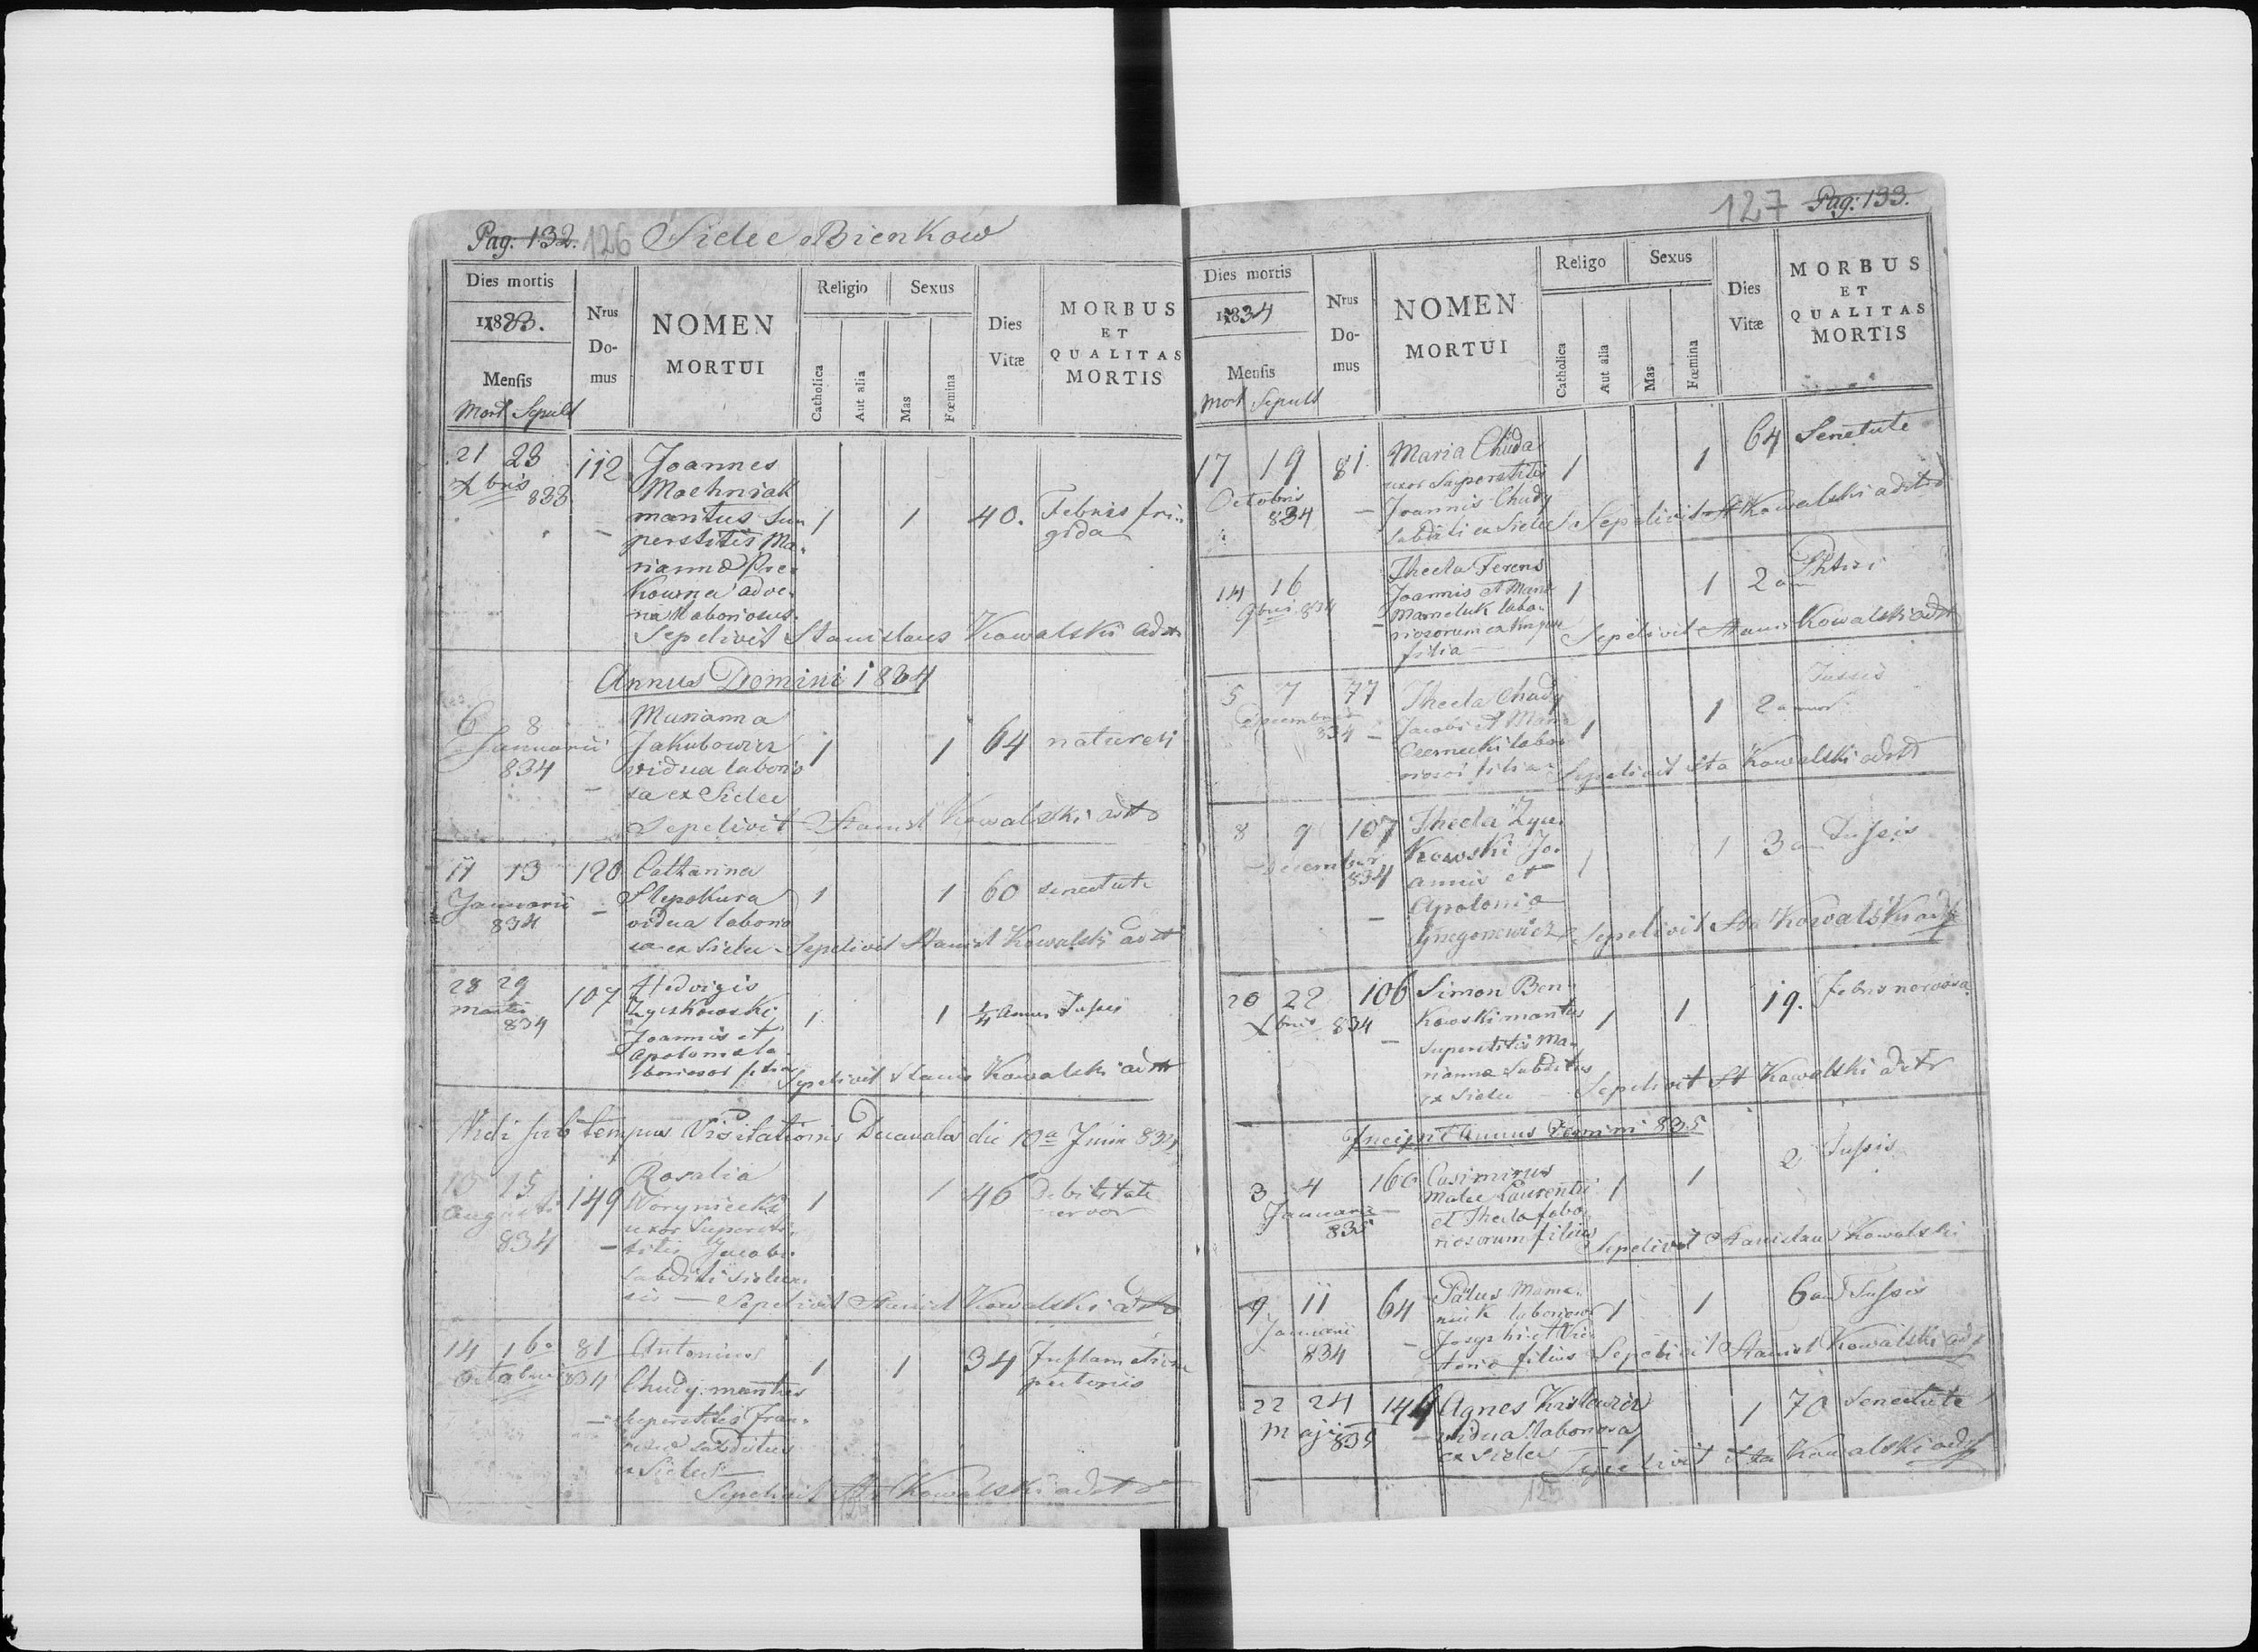 Pag: 132. 126 Sielec Bienkow
Dies mortis
1833.
Mensis
Mort Sepult
Nrus
Do-
mus
NOMEN
MORTUI
Religio
Catholica
Aut alia
Sexus
Mas
Fœmina
Dies
Vitæ
MORBUS
ET
QUALITAS
MORTIS
21 23 112 Joannes
Xbris 833
maritus Su-
perstitis Ma- 1 1 40. Febris fri-
gida
rianna
kowna adve-
na laboriosus.
Sepelivit Stanislaus Kowalski adtr
Annus Domini 1834
6 8 Marianna
Januarii Jakubowicz 1 1 64
834 vidua laborio
sa ex Sielec
Sepelivit Stanisl Kowalski adtr
11 13 120 Catharina
Januarii Slepokura 1 1 60 senectute
834 vidua laborio
sa ex Sielec Sepelivit Stanisl Kowalski adtr
28 29 107 Hedvigis
Martii Zyczkowski 1 1 1/4 Tussis
834 Joannis et
Apoloniæ la-
boriosor filia
Sepelivit Stanis Kowalski adtr
Vidi sub tempus Visitationis Decanalis die 10a Junii 834
13 15 149 Rosalia
Augusti 1 1 46 Debilitate
nervor
834 uxor Supersti-
titis Jacobi
subditi Sielec
Sepelivit Stanisl Kowalski adtr
14 16 81 Antonius
Octobris 834 Chudy maritus 1 1 34
pectoris
superstitis Fran-
subditus
ex Sielec
Sepelivit St Kowalski adtr
127 Pag: 133.
Dies mortis
1834
Mensis
Mort Sepult
Nrus
Do-
mus
NOMEN
MORTUI
Religo
Catholica
Aut alia
Sexus
Mas
Fœmina
Dies
Vitæ
MORBUS
ET
QUALITAS
MORTIS
17 19 81 Maria Chuda 1 1 64 Senetute
Octobris uxor Superstitis
834 Joannis Chudy
subditi ex Sielec Sepelivit St Kowalski adtr
14 16 Thecla Ferens 1 1 2 Phtisi
9bris 834 Joannis et
Mameluk labo-
riosorum
filia Sepelivit Stanis Kowalski adtr
5 7 77 Thecla Chudy 1 1 2 Tussis
Decembris Jacobi et Maria
834 Czernecki labo
riosor filia Sepelivit Sta Kowalski adtr
8 9 107 Thecla Zycz-
Decembr kowski Jo- 1 1 3 Tussis
834 annis et
Apolonia
Gregorewicz Sepelivit Sta Kowalski adtr
20 22 106 Simon Ben-
Xbris 834 kowski maritus 1 1 19. Febris nervosa
superstitis Ma-
rianna subditus
ex Sielec Sepelivit St Kowalski adtr
Incipit Annus Domini 835
3 4 160 Casimirus 1 1 2 Tussis
Januarii Laurentii
835 et Thecla labo-
riosorum filius Sepelivit Stanislaus Kowalski
9 11 64 1 1 6 Tussis
Januarii Josephi et Vic-
834 toria filius Sepelivit Stanisl Kowalski adtr
22 24 149 Agnes 1 70 Senectute
Maji 835 vidua laboriosa
ex Sielec Sepelivit Sta Kowalski adtr
125